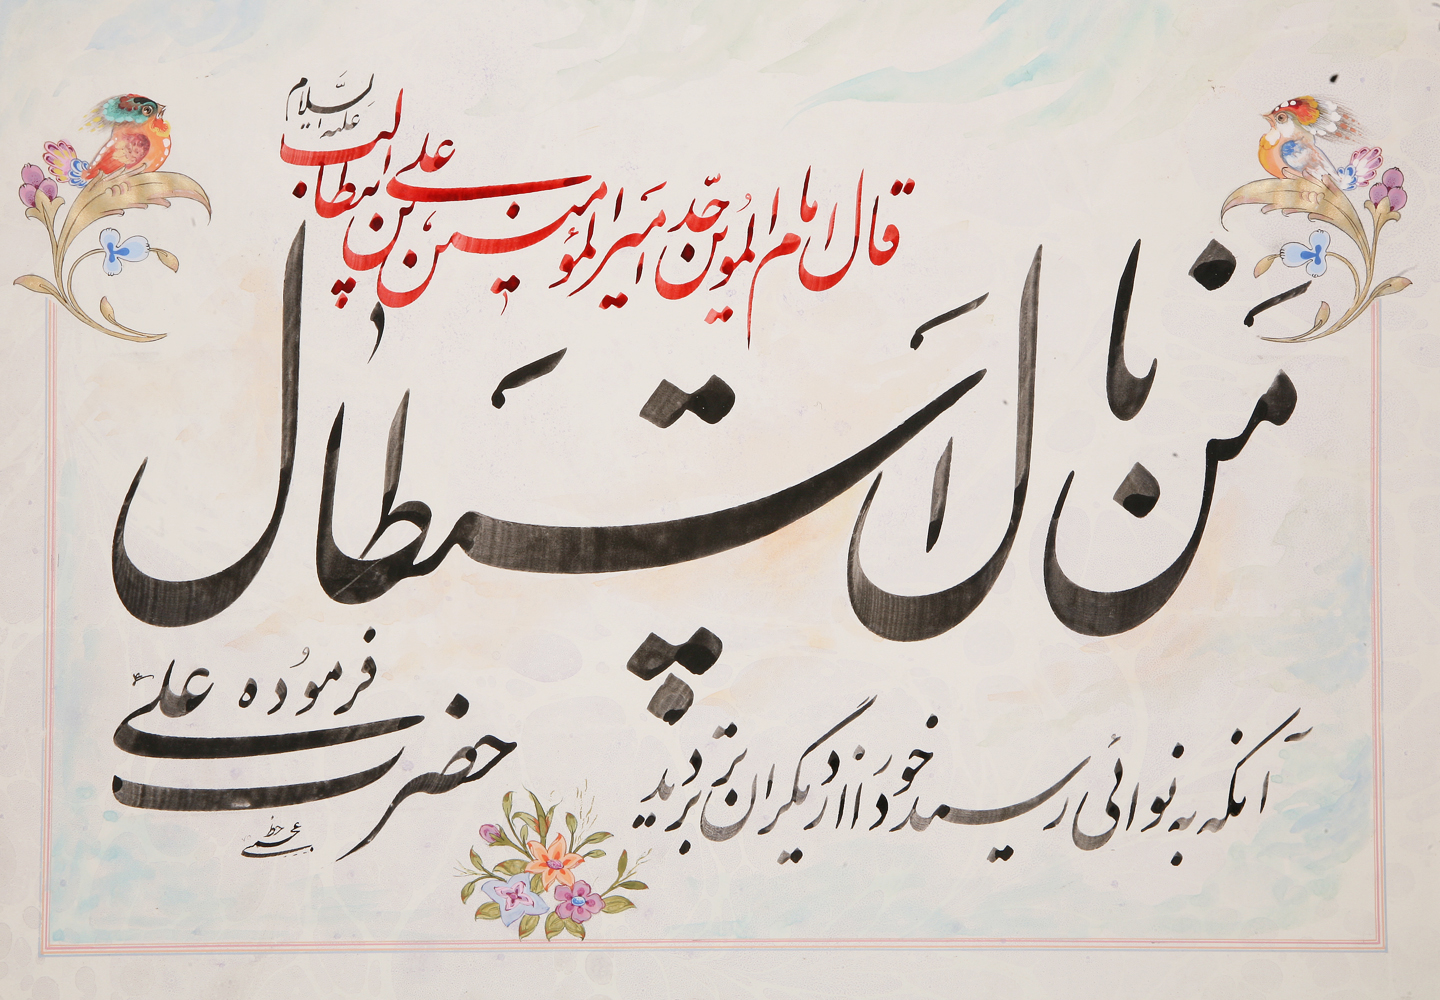 قال امام الموحّدین امیر المؤمنین علی بن ابیطالب علیه السلام
مَن نال استَطال
آنکه به نوائی رسید خود را از دیگران برتر دید
فرموده
حضرت علی ؑ
خط